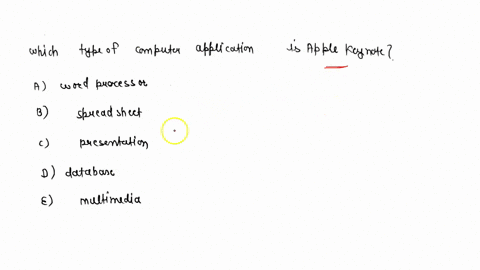 which type of computer application is Apple Keynote?
A) word processor
B) spreadsheet
c) presentation
D) database
E) multimedia